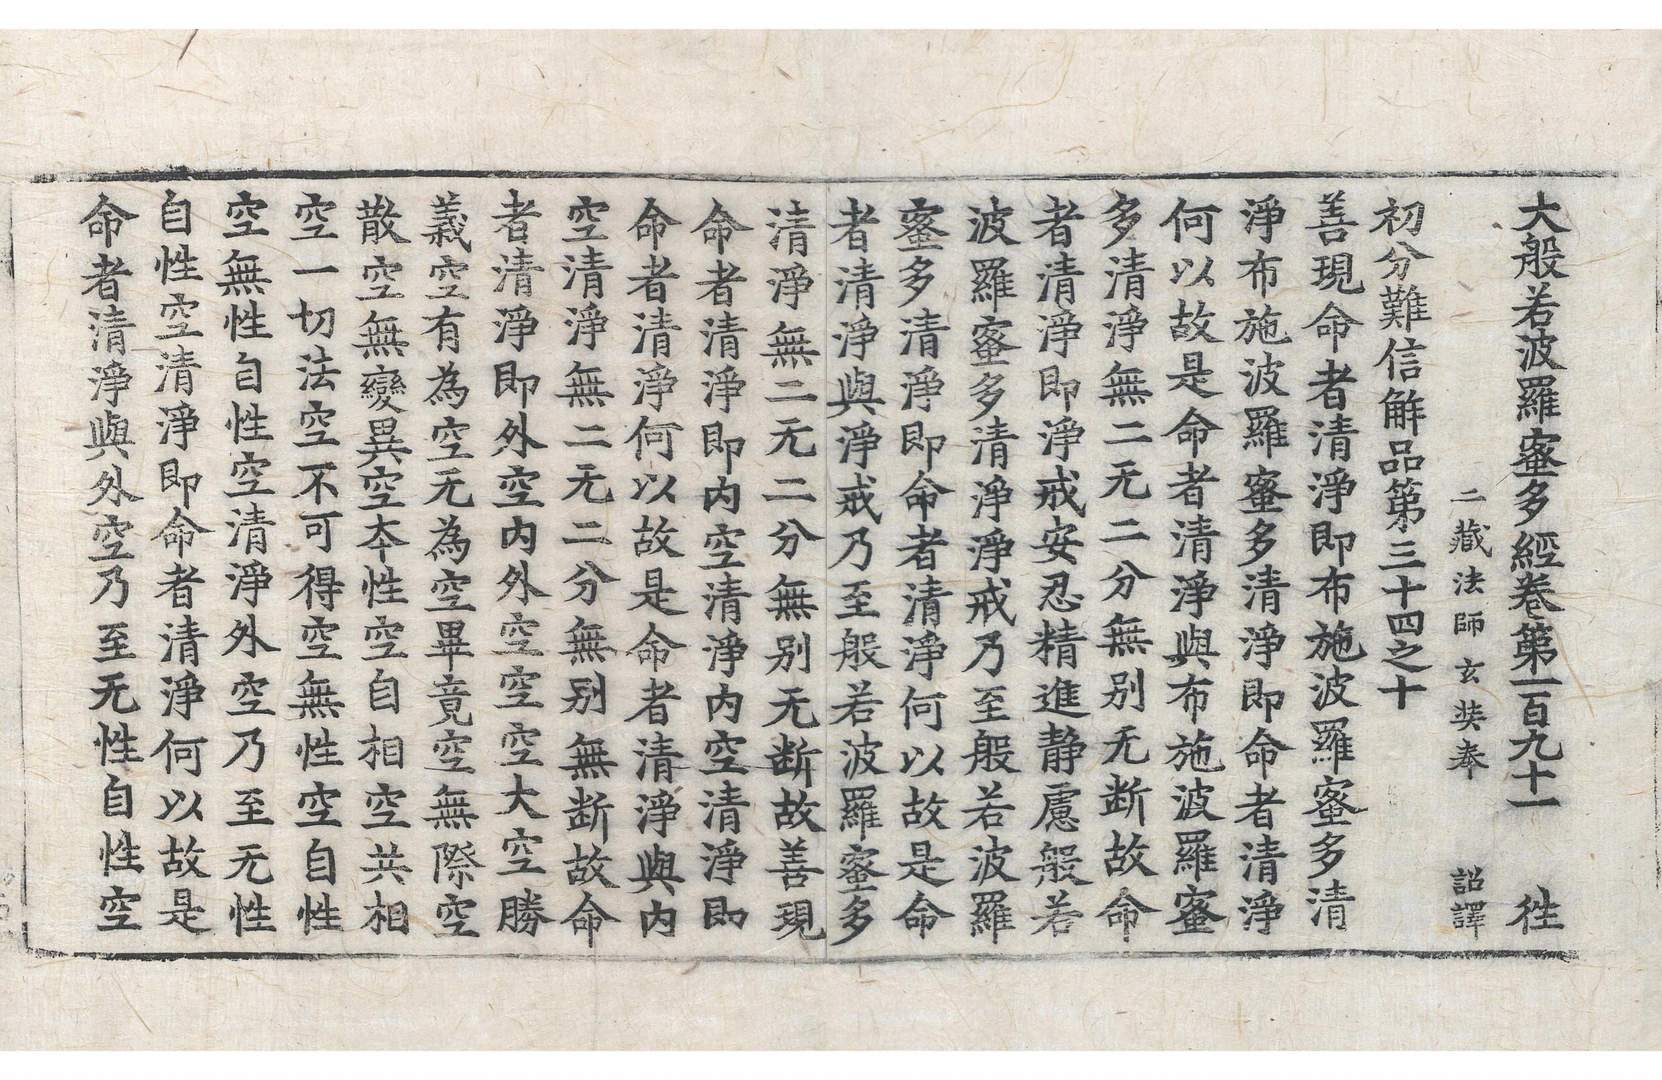 大般若波羅蜜多經卷第一百九十一 徃
二藏法師玄奘奉 詔譯
初分難信解品第三十四之十
善現命者清淨即布施波羅蜜多清
淨布施波羅蜜多清淨即命者清淨
何以故是命者清淨與布施波羅蜜
多清淨無二无二分無別无断故命
者清淨即淨戒安忍精進静慮般若
波羅蜜多清淨淨戒乃至般若波羅
蜜多清淨即命者清淨何以故是命
者清淨與淨戒乃至般若波羅蜜多
清淨無二无二分無别无断故善現
命者清淨即内空清淨内空清淨即
命者清淨何以故是命者清淨與内
空清淨無二无二分無别無断故命
者清淨即外空内外空空空大空勝
義空有為空无為空畢竟空無際空
散空無變異空本性空自相空共相
空一切法空不可得空無性空自性
空無性自性空清淨外空乃至无性
自性空清淨即命者清淨何以故是
命者清淨與外空乃至无性自性空